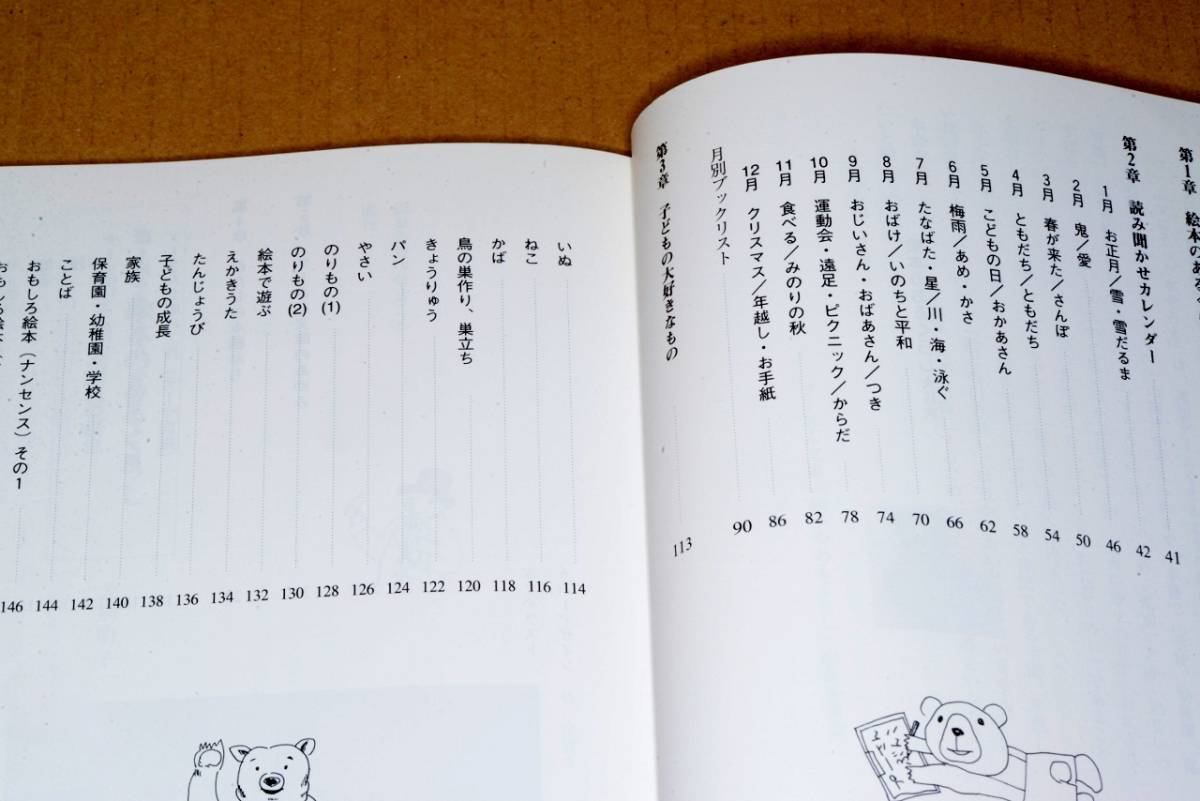 第1章 絵本のある
第2章 読み聞かせカレンダー 41
1月 お正月／雪・雪だるま 42
2月 鬼／愛 46
3月 春が来た／さんぽ 50
4月 ともだち／ともだち 54
5月 こどもの日／おかあさん 58
6月 梅雨／あめ・かさ 62
7月 たなばた・星／川・海・泳ぐ 66
8月 おばけ／いのちと平和 70
9月 おじいさん・おばあさん／つき 74
10月 運動会・遠足・ピクニック／からだ 78
11月 食べる／みのりの秋 82
12月 クリスマス／年越し・お手紙 86
月別ブックリスト 90
第3章 子どもの大好きなもの 113
いぬ 114
ねこ 116
かば 118
鳥の巣作り、巣立ち 120
きょうりゅう 122
パン 124
やさい 126
のりもの(1) 128
のりもの(2) 130
絵本で遊ぶ 132
えかきうた 134
たんじょうび 136
子どもの成長 138
家族 140
保育園・幼稚園・学校 142
ことば 144
おもしろ絵本（ナンセンス）その1 146
おもしろ絵本